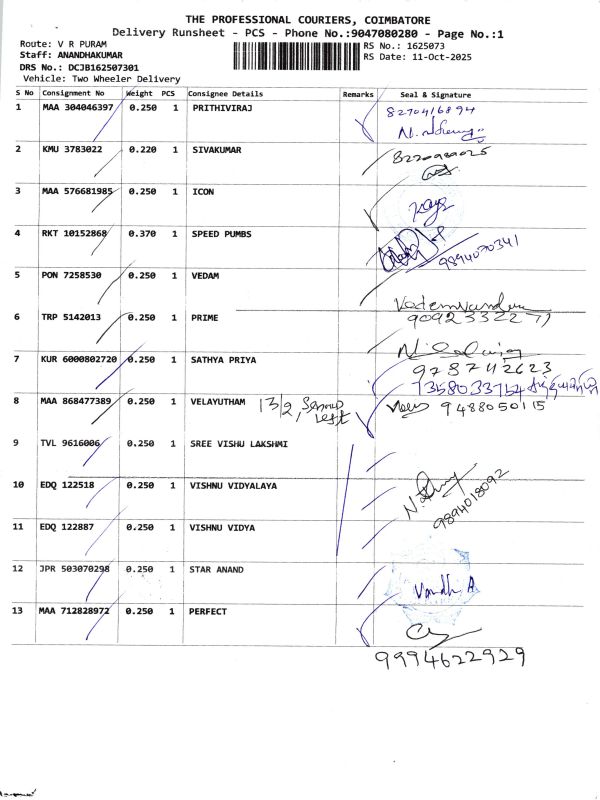 THE PROFESSIONAL COURIERS, COIMBATORE
Delivery Runsheet - PCS - Phone No.:9047080280 - Page No.:1
Route: V R PURAM
RS No.: 1625073
Staff: ANANDHAKUMAR
RS Date: 11-Oct-2025
DRS No.: DCJB162507301
Vehicle: Two Wheeler Delivery
S No Consignment No Weight PCS Consignee Details Remarks Seal & Signature
1 MAA 304046397 0.250 1 PRITHIVIRAJ 8270416894
2 KMU 3783022 0.220 1 SIVAKUMAR
3 MAA 576681985 0.250 1 ICON
4 RKT 10152868 0.370 1 SPEED PUMBS 9894070341
5 PON 7258530 0.250 1 VEDAM
6 TRP 5142013 0.250 1 PRIME 9092332271
7 KUR 6000802720 0.250 1 SATHYA PRIYA 9787412623
7358033754
8 MAA 868477389 0.250 1 VELAYUTHAM 13/2, 9488050115
9 TVL 9616006 0.250 1 SREE VISHU LAKSHMI
10 EDQ 122518 0.250 1 VISHNU VIDYALAYA
9894018092
11 EDQ 122887 0.250 1 VISHNU VIDYA
12 JPR 503070298 0.250 1 STAR ANAND
13 MAA 712828972 0.250 1 PERFECT
9994622929